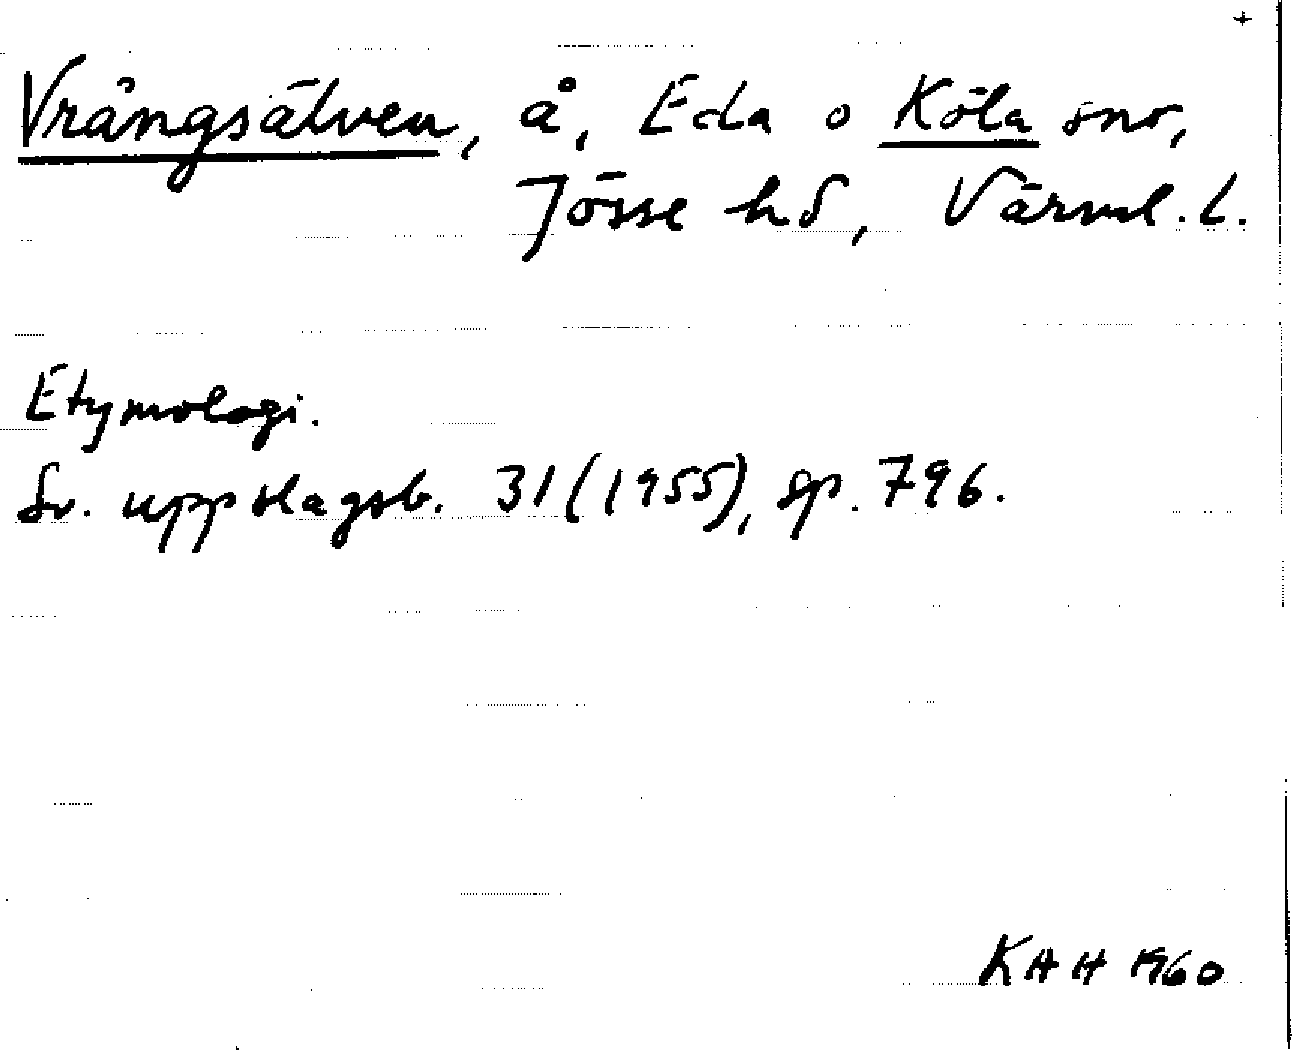 +
Vrångsälven, å, Eda o Köla snr,
Jösse hd, Värml. l.
Etymologi.
Sv. uppslagsb. 31 (1955), sp. 796.
KAH 1960